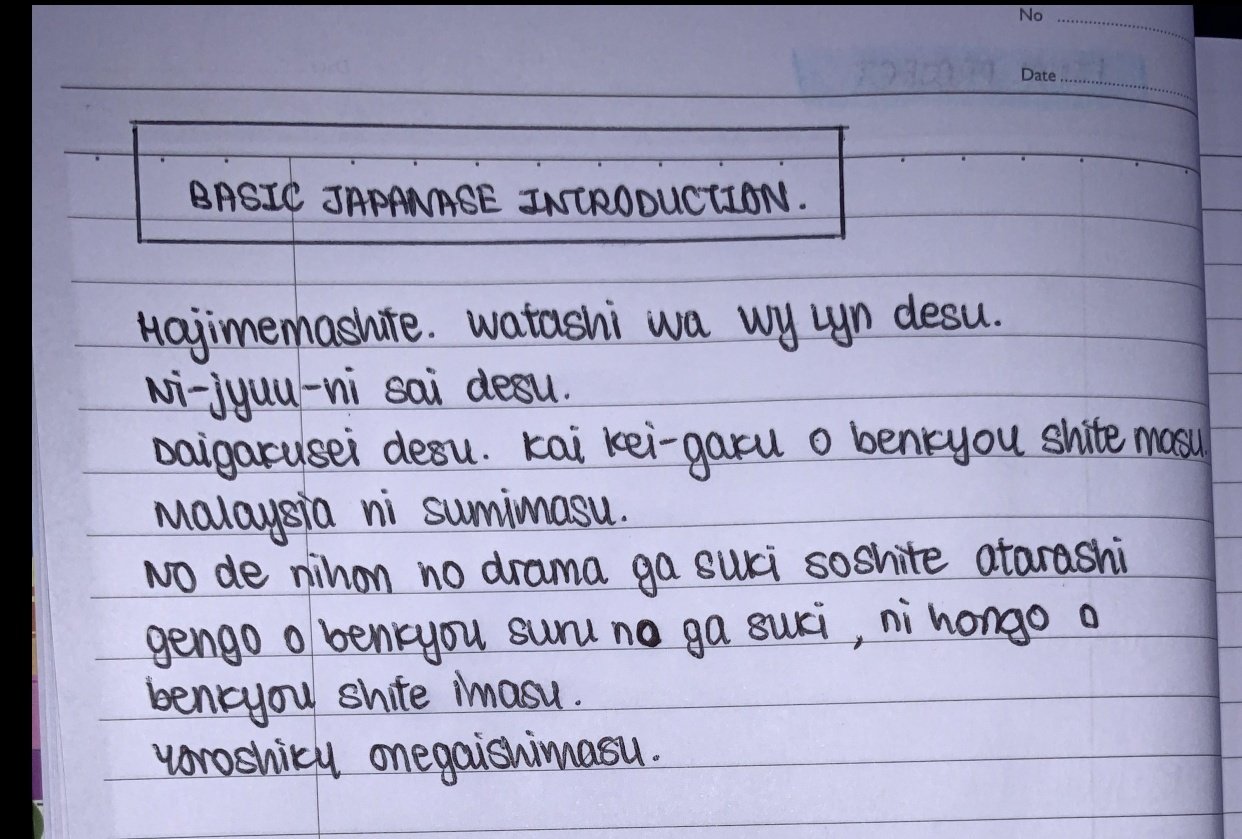 No
Date
BASIC JAPANASE INTRODUCTION.
Hajimemashite. Watashi wa Wy Lyn desu.
Ni-jyuu-ni sai desu.
Daigakusei desu. Kai kei-gaku o benkyou shite masu.
Malaysia ni sumimasu.
No de nihon no drama ga suki soshite atarashi
gengo o benkyou suru no ga suki, ni hongo o
benkyou shite imasu.
Yoroshiku onegaishimasu.